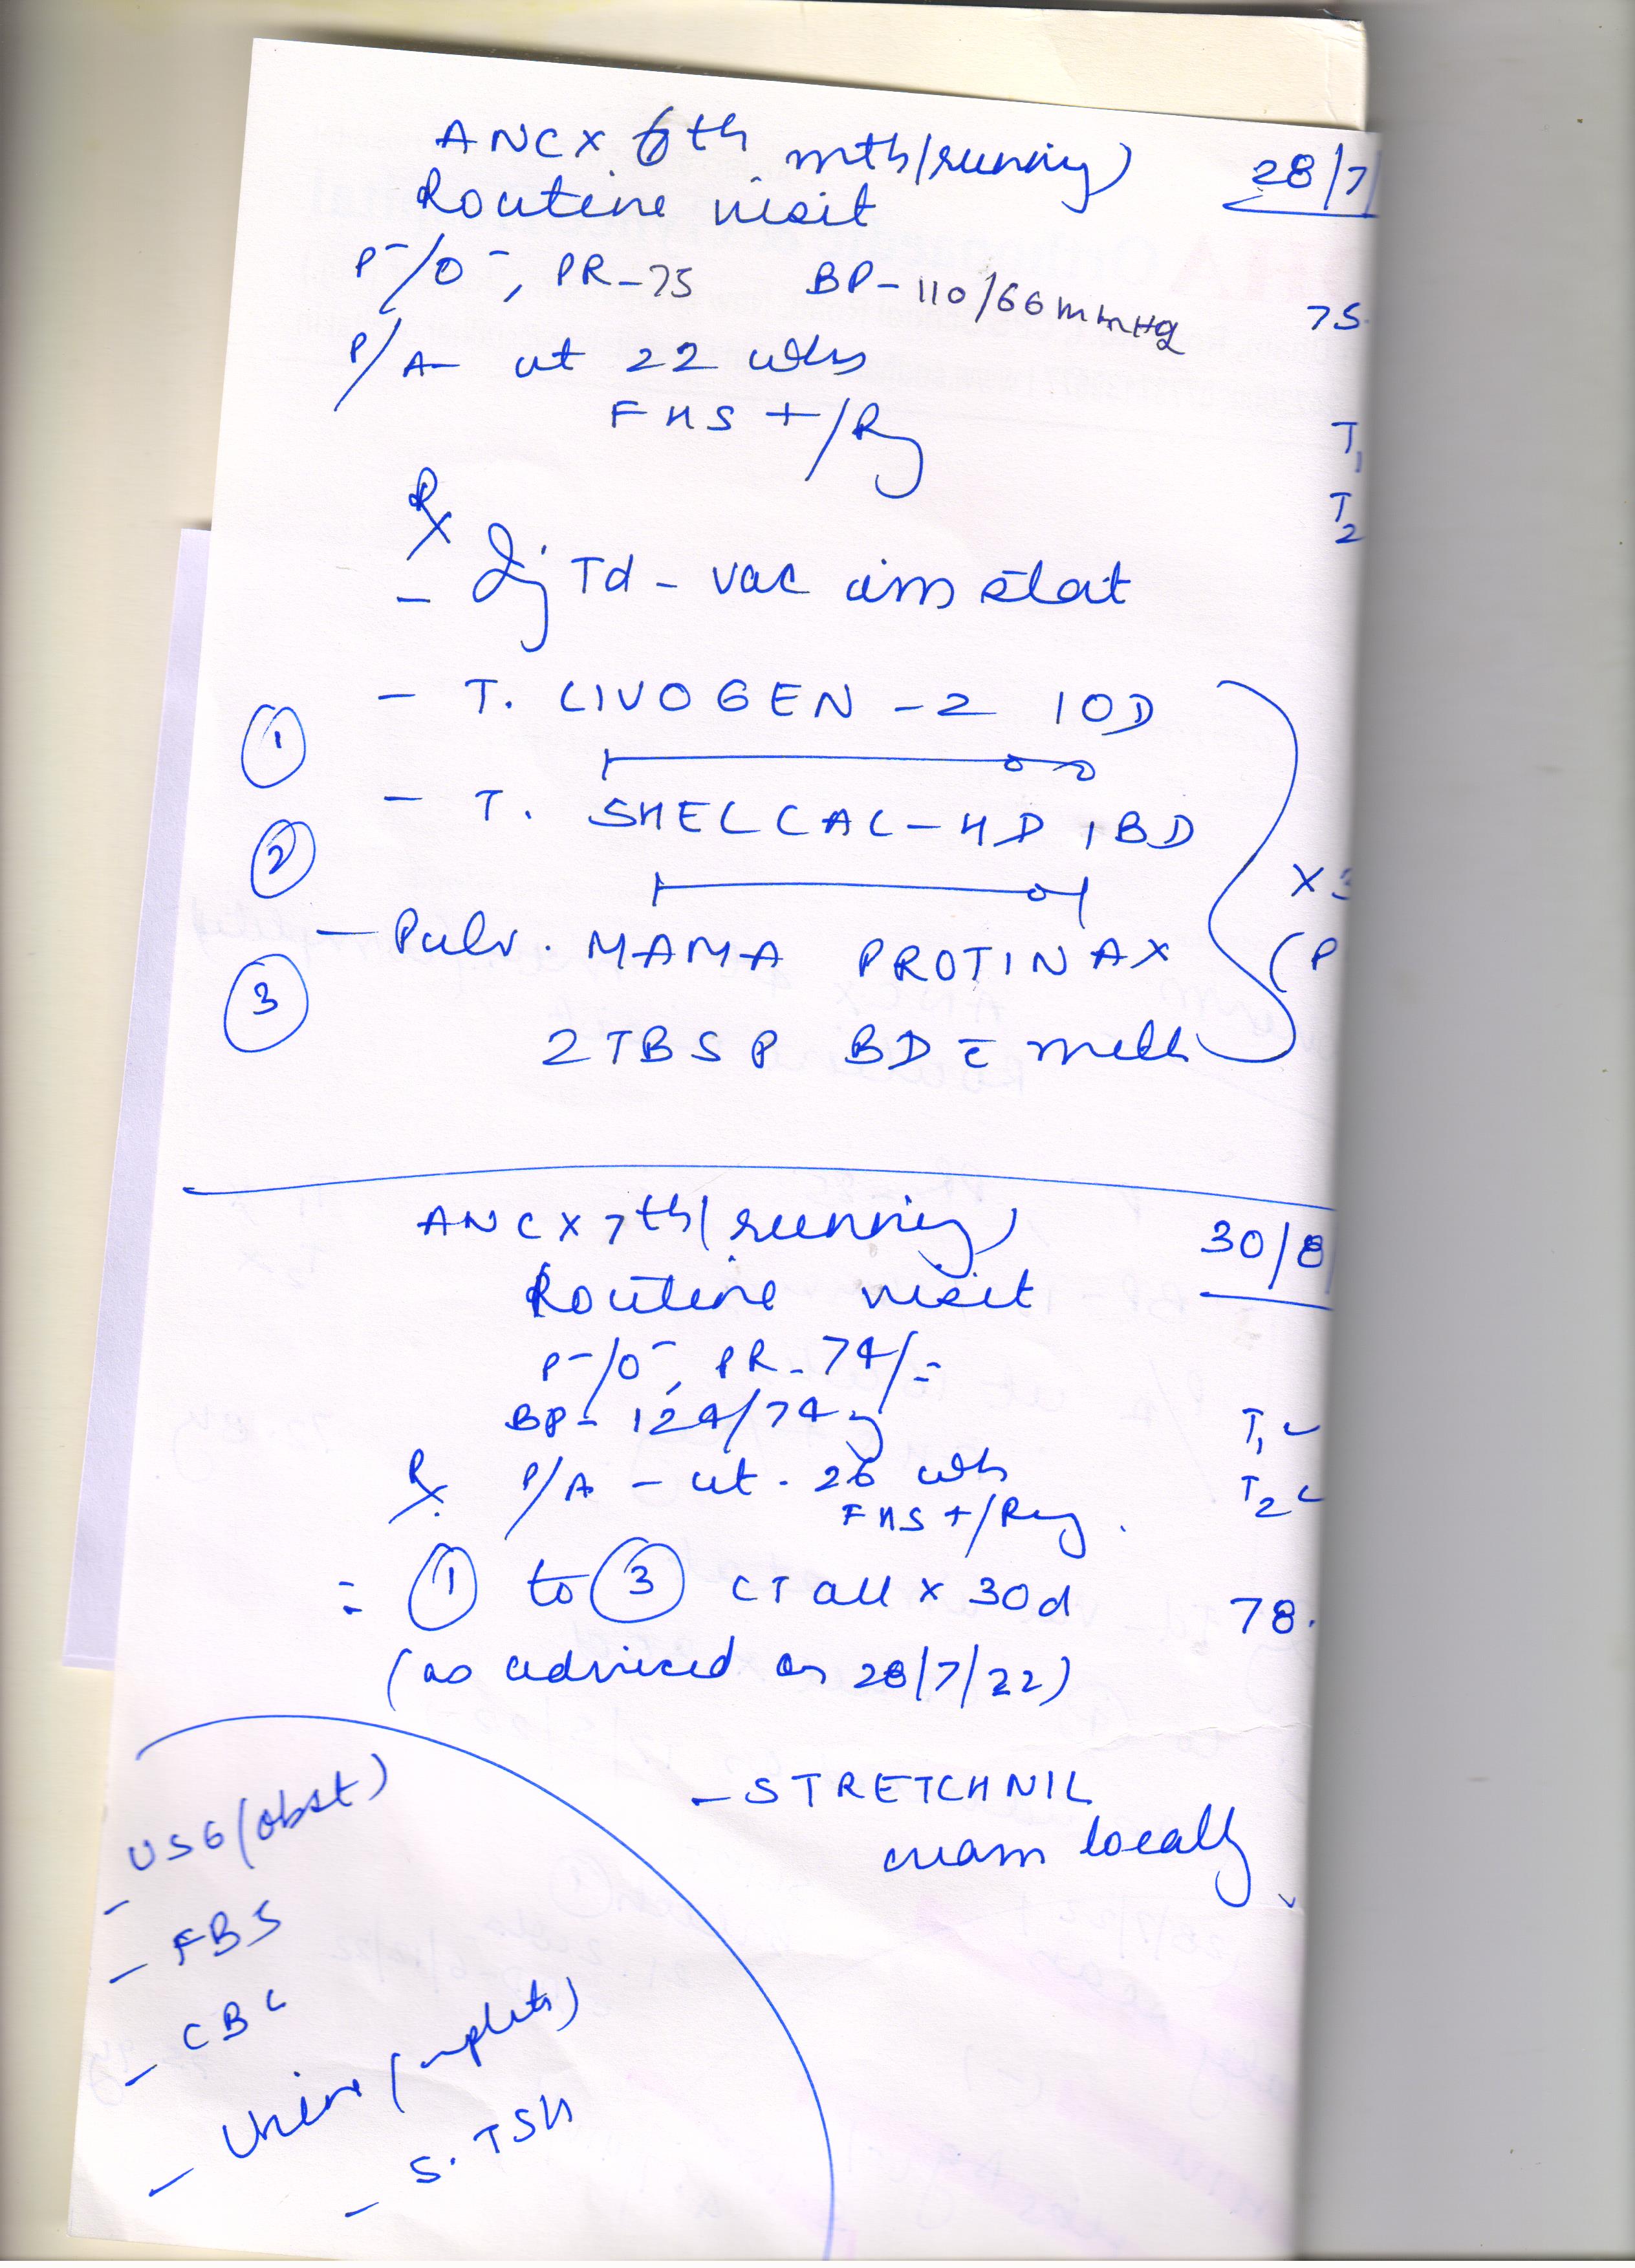 ANC x 6th mth (running) 28/7/
Routine visit
P-/O-, PR-75 BP-110/66 mmHg 75.
P/A- ut 22 wks T1
FHS +/Rg T2
Rx
- Inj Td - vac im stat
① - T. LIVOGEN-Z 1OD
② - T. SHELCAL-HD 1BD
- Pulv. MAMA PROTINAX (P
③ 2TBSP BD c̄ milk
ANC x 7th (running) 30/8/
Routine visit
P-/O-, PR-74/=
BP- 124/74 T1 ✓
Rx P/A - ut - 26 wks T2
FHS +/Reg.
= ① to ③ CT all x 30d 78.
(as adviced on 28/7/22)
- STRETCHNIL
cream locally
- USG (obst)
- FBS
- CBC
- Urine (complete)
- S. TSH